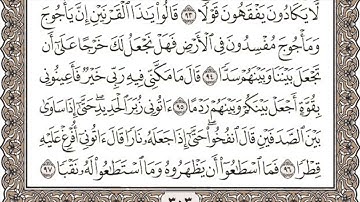 لَّا يَكَادُونَ يَفْقَهُونَ قَوْلًا ٩٣ قَالُوا۟ يَـٰذَا ٱلْقَرْنَيْنِ إِنَّ يَأْجُوجَ
وَمَأْجُوجَ مُفْسِدُونَ فِى ٱلْأَرْضِ فَهَلْ نَجْعَلُ لَكَ خَرْجًا عَلَىٰٓ أَن
تَجْعَلَ بَيْنَنَا وَبَيْنَهُمْ سَدًّا ٩٤ قَالَ مَا مَكَّنِّى فِيهِ رَبِّى خَيْرٌ فَأَعِينُونِى
بِقُوَّةٍ أَجْعَلْ بَيْنَكُمْ وَبَيْنَهُمْ رَدْمًا ٩٥ ءَاتُونِى زُبَرَ ٱلْحَدِيدِ حَتَّىٰٓ إِذَا سَاوَىٰ
بَيْنَ ٱلصَّدَفَيْنِ قَالَ ٱنفُخُوا۟ حَتَّىٰٓ إِذَا جَعَلَهُۥ نَارًا قَالَ ءَاتُونِىٓ أُفْرِغْ عَلَيْهِ
قِطْرًا ٩٦ فَمَا ٱسْطَـٰعُوٓا۟ أَن يَظْهَرُوهُ وَمَا ٱسْتَطَـٰعُوا۟ لَهُۥ نَقْبًا ٩٧
٣٠٣